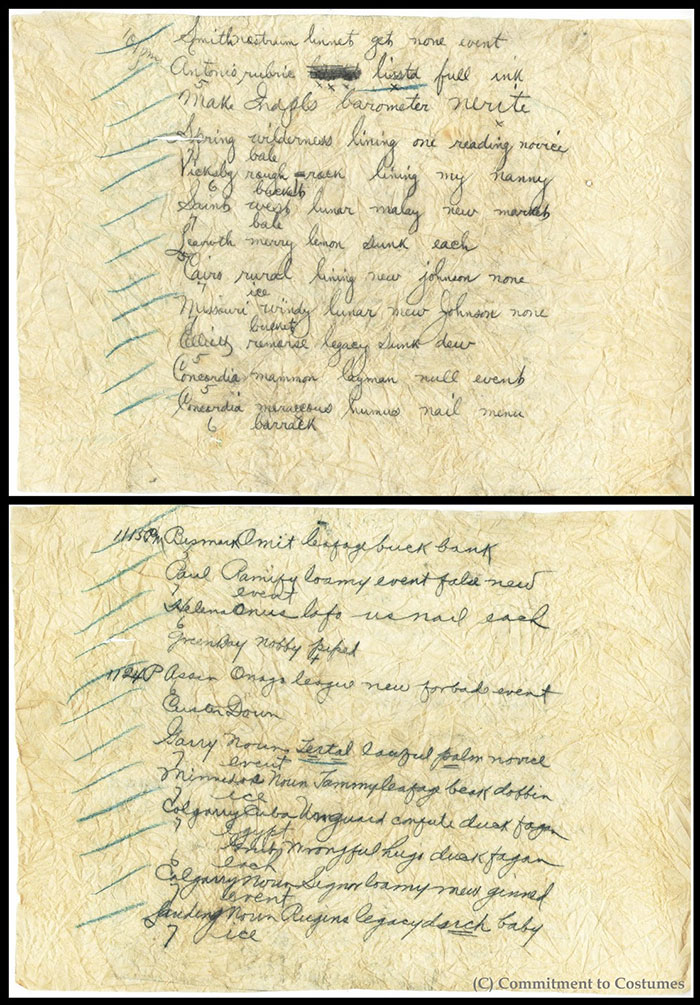 10pm
Smith nostrum linnet get none event
Antonio rubric lisstd full ink
5 x x x x
Make Indpls barometer nerite
x
Spring wilderness lining one reading novice
7 bale
Vicksbg rough rock lining my nanny
6 bucket
Saint west lunar malay new market
7 bale
Leavwth merry lemon sunk each
5
Cairo rural lining new johnson none
7 ice
Missouri windy lunar mew Johnson none
7 bucket
Elliott remorse legacy sunk dew
5
Concordia mammon layman null event
5
Concordia meraccous humus nail menu
6 barrack
1115 PM Bismark Omit leafage buck bank
5
Paul Ramify loamy event false new
7 event
Helena Onus lofo us nail each
6
Green Bay nobby piped
4
1124 P Assin Onago league new forbade event
Custer Down
Garry Noun Tertal lawful palm novice
7 event
Minnedos Noun Jammy leafage beak dobbin
7 ice
Calgarry Cuba Unguard confute duck fagan
7 Egypt
Grit Wrongful hugo duck fagan
6 each
Calgarry Noun Signor loamy mew ginned
7 event
Landing Noun Rugins legacy dsrch baby
7 ice
(C) Commitment to Costumes